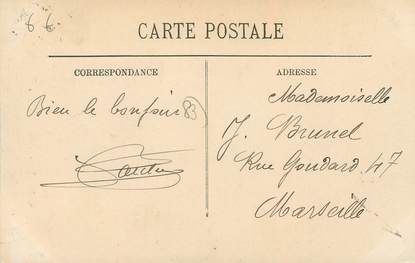 66
CARTE POSTALE
CORRESPONDANCE
ADRESSE
Bien le bonjour
83
Mademoiselle
J. Brunel
Rue Goudard 47
Marseille